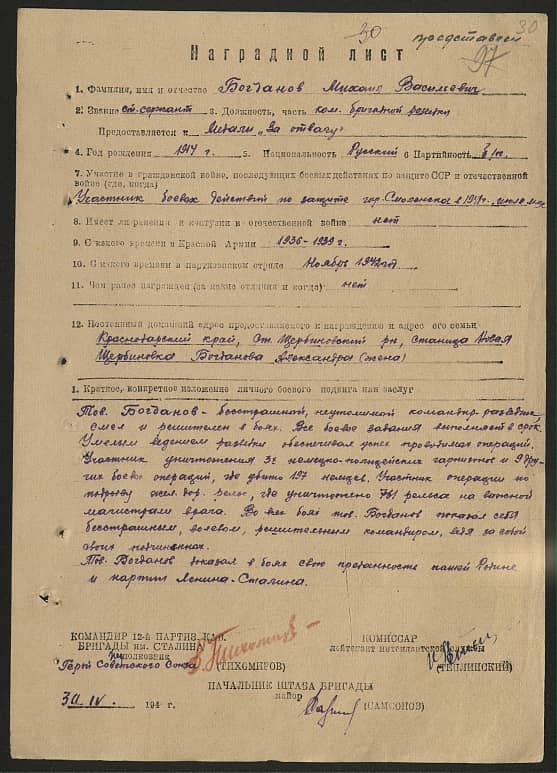 30
30
представлен
97
Наградной лист
1. Фамилия, имя и отчество Богданов Михаил Васильевич
2. Звание ст. сержант 3. Должность, часть ком. бригадной разведки
Предоставляется к медали „За отвагу"
4. Год рождения 1917 г. 5. Национальность Русский 6 Партийность б/п
7. Участие в гражданской войне, последующих боевых действиях по защите ССР и отечественной
войне (где, когда)
Участник боевых действий по защите гор. Смоленска в 1941 г.
8. Имеет ли ранения и контузии в отечественной войне нет
9. С какого времени в Красной Армии 1936-1939 г.
10. С какого времени в партизанском отряде Ноябрь 1942 год
11. Чем ранее награжден (за какие отличия и когда) нет
12. Постоянный домашний адрес предоставляемого к награждению и адрес его семьи
Краснодарский край, Ст. Щербиновский рн, станица Новая
Щербиновка Богданова Александра (жена)
1. Краткое, конкретное изложение личного боевого подвига или заслуг
Тов. Богданов - бесстрашный, неутомимый командир разведки,
смел и решителен в боях. Все боевые задания выполняет в срок.
Умелым ведением разведки обеспечивал успех проводимых операций.
Участник уничтожения 32 немецко-полицейских гарнизонов и 9 дру-
гих боевых операций, где убито 197 немцев. Участник операции по
подрыву жел. дор. рельс, где уничтожено 761 рельса на важной
магистрали врага. Во всех боях тов. Богданов показал себя
бесстрашным, волевым, решительным командиром, ведя за собой
своих подчиненных.
Тов. Богданов доказал в боях свою преданность нашей Родине
и партии Ленина-Сталина.
КОМАНДИР 12-й ПАРТИЗ. КАВ.
БРИГАДЫ им. СТАЛИНА
подполковник
Герой Советского Союза (ТИХОМИРОВ)
КОМИССАР
лейтенант интендантской службы
(ТЕПЛИНСКИЙ)
НАЧАЛЬНИК ШТАБА БРИГАДЫ
майор
(САМСОНОВ)
30 IV 194 г.